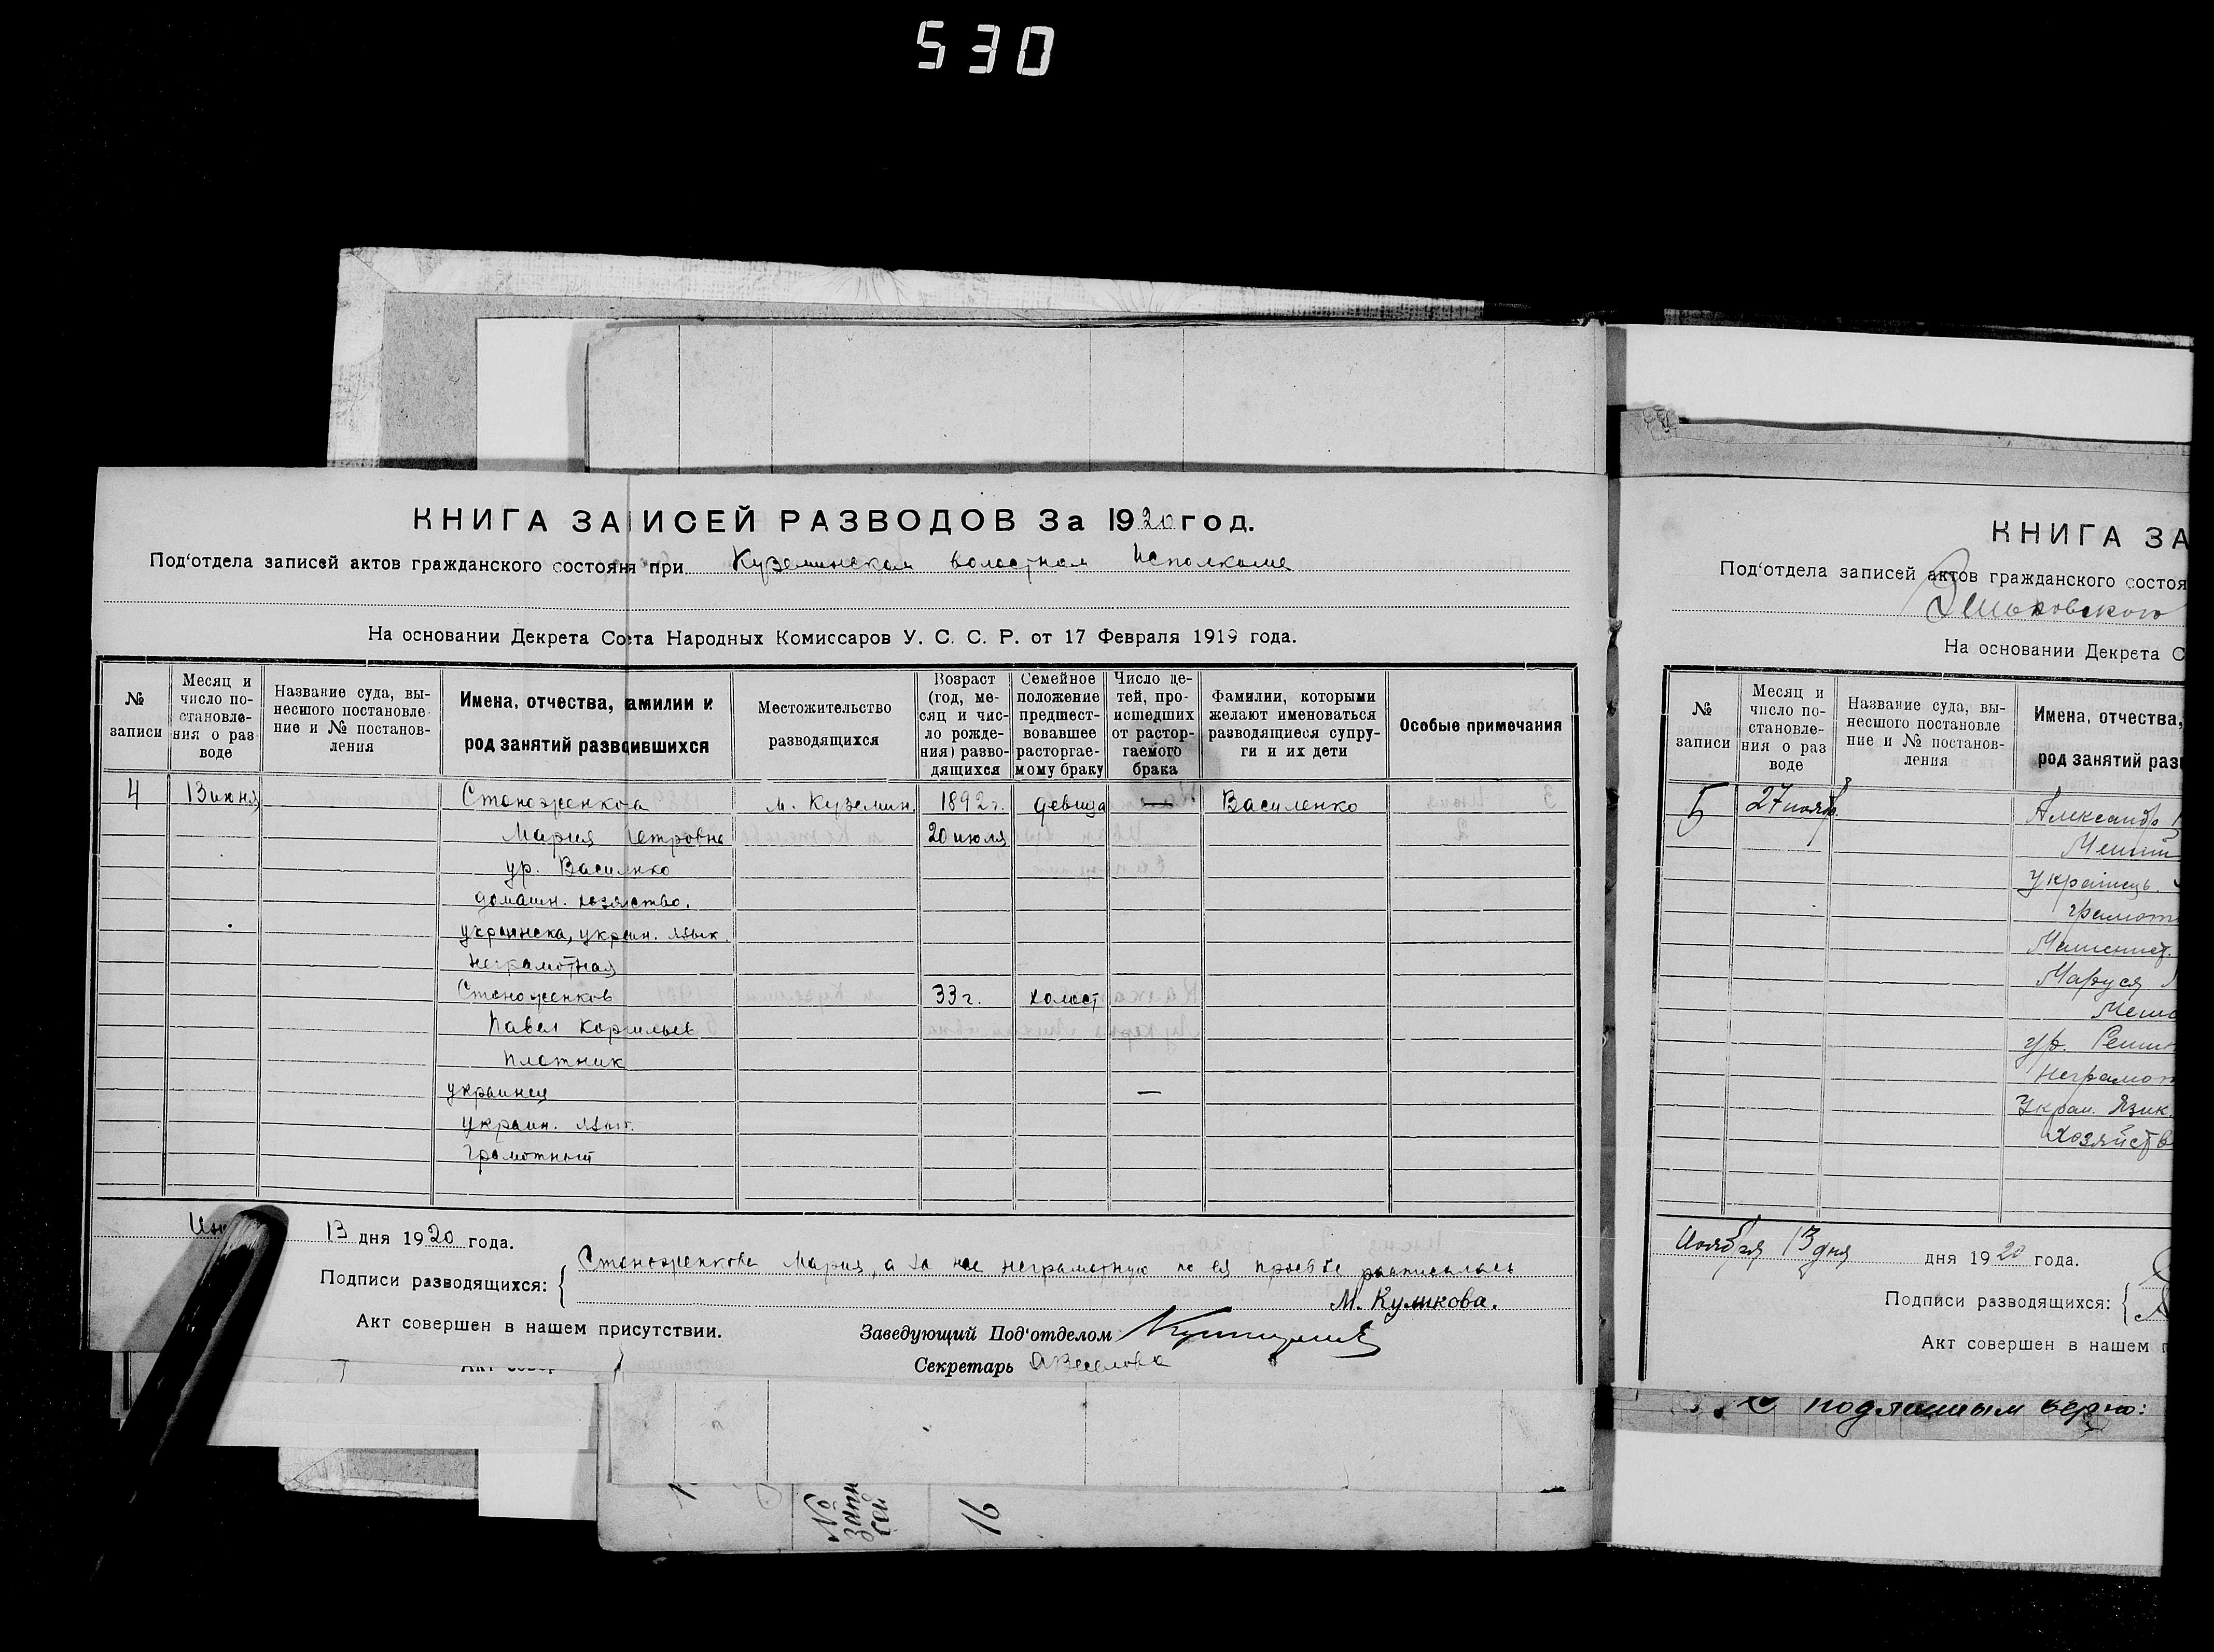 530
КНИГА ЗАПИСЕЙ РАЗВОДОВ За 1920 год.
Под'отдела записей актов гражданского состояния при Куземинском волостном Исполкоме
На основании Декрета Совета Народных Комиссаров У. С. С. Р. от 17 Февраля 1919 года.
№ записи
Месяц и число по-становле-ния о раз воде
Название суда, вы-несшого постановле ние и № постанов-ления
Имена, отчества, фамилии и род занятий разводившихся
Местожительство разводящихся
Возраст (год, ме-сяц и чис-ло рожде-ния) разво-дящихся
Семейное положение предшест-вовавшее расторгае-мому браку
Число де-тей, про-исшедших от растор-гаемого брака
Фамилии, которыми желают именоваться разводящиеся супру-ги и их дети
Особые примечания
4 13 июня Стоноженкова м. Куземин. 1892 г. девица — Василенко
Мария Петровна 20 июля
ур. Василенко
домашн. хозяйство.
украинска, украин. язык.
неграмотная
Стоноженков 33 г. холост
Павел Корнильев
Плотник
украинец —
украин. язык.
Грамотный
13 дня 1920 года.
Подписи разводящихся: Стоноженкова Мария, а за нее неграмотную по ея просьбе расписалась
М. Куликова.
Акт совершен в нашем присутствии.
Заведующий Под'отделом
Секретарь АВеселова
КНИГА ЗА
Под'отдела записей актов гражданского состоя
Зеньковского
На основании Декрета С
№ записи
Месяц и число по-становле-ния о раз воде
Название суда, вы-несшого постановле ние и № постанов-ления
Имена, отчества,
род занятий разв
5 27 нояб. Александр
Украинець.
грамотн
Машинист.
Маруся
ур.
Неграмот
Украи. Язик.
Хозяйств
Ноября 13 дня дня 1920 года.
Подписи разводящихся:
Акт совершен в нашем п
С подлинным верно:
№ запи сей
16